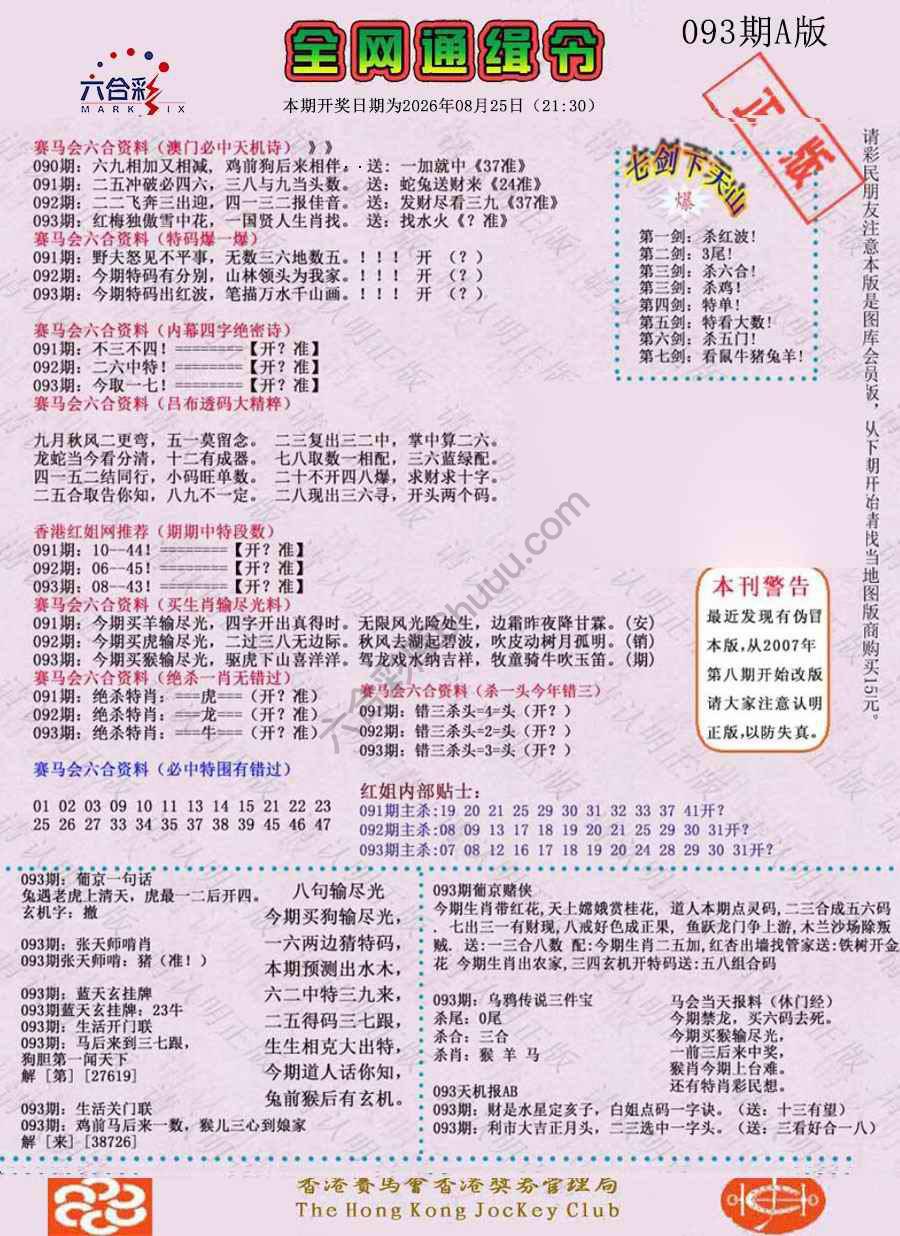 093期A版
全网通缉令
六合彩
MARK SIX
本期开奖日期为2026年08月25日（21:30）
正版
赛马会六合资料（澳门必中天机诗）》》
090期：六九相加又相减，鸡前狗后来相伴。. 送：一加就中《37准》
091期：二五冲破必四六，三八与九当头数。 送：蛇兔送财来《24准》
092期：二二飞奔三出迎，四一三二报佳音。 送：发财尽看三九《37准》
093期：红梅独傲雪中花，一国贤人生肖找。 送：找水火《？准》
赛马会六合资料（特码爆一爆）
091期：野夫怒见不平事，无数三六地数五。！！！ 开 （？）
092期：今期特码有分别，山林领头为我家。！！！ 开 （？）
093期：今期特码出红波，笔描万水千山画。！！！ 开 （？）
七剑下天山
爆
第一剑：杀红波！
第二剑：3尾！
第三剑：杀六合！
第三剑：杀鸡！
第四剑：特单！
第五剑：特看大数！
第六剑：杀五门！
第七剑：看鼠牛猪兔羊！
请彩民朋友注意本版是图库会员版，从下期开始请找当地图版商购买15元。
赛马会六合资料（内幕四字绝密诗）
091期：不三不四！========【开？准】
092期：二六中特！========【开？准】
093期：今取一七！========【开？准】
赛马会六合资料（吕布透码大精粹）
九月秋风二更弯，五一莫留念。 二三复出三二中，掌中算二六。
龙蛇当今看分清，十二有成器。 七八取数一相配，三六蓝绿配。
四一五二结同行，小码旺单数。 二十不开四八爆，求财求十字。
二五合取告你知，八九不一定。 二八现出三六寻，开头两个码。
香港红姐网推荐（期期中特段数）
091期：10--44！========【开？准】
092期：06--45！========【开？准】
093期：08--43！========【开？准】
赛马会六合资料（买生肖输尽光料）
091期：今期买羊输尽光，四字开出真得时。无限风光险处生，边霜昨夜降甘霖。（安）
092期：今期买虎输尽光，二过三八无边际。秋风去湖起碧波，吹皮动树月孤明。（销）
093期：今期买猴输尽光，驱虎下山喜洋洋。驾龙戏水纳吉祥，牧童骑牛吹玉笛。（期）
本刊警告
最近发现有伪冒
本版,从2007年
第八期开始改版
请大家注意认明
正版,以防失真。
赛马会六合资料（绝杀一肖无错过）
091期：绝杀特肖：===虎===（开？准）
092期：绝杀特肖：===龙===（开？准）
093期：绝杀特肖：===牛===（开？准）
赛马会六合资料（杀一头今年错三）
091期：错三杀头=4=头（开？）
092期：错三杀头=2=头（开？）
093期：错三杀头=3=头（开？）
赛马会六合资料（必中特围有错过）
01 02 03 09 10 11 13 14 15 21 22 23
25 26 27 33 34 35 37 38 39 45 46 47
红姐内部贴士：
091期主杀:19 20 21 25 29 30 31 32 33 37 41开？
092期主杀:08 09 13 17 18 19 20 21 25 29 30 31开？
093期主杀:07 08 12 16 17 18 19 20 24 28 29 30 31开？
093期：葡京一句话
兔遇老虎上清天，虎最一二后开四。
玄机字：撤
093期：张天师啃肖
093期张天师啃：猪（准！）
093期：蓝天玄挂牌
093期蓝天玄挂牌：23牛
093期：生活开门联
093期：马后来到三七跟，
狗胆第一闻天下
解［第］[27619]
093期：生活关门联
093期：鸡前马后来一数，猴儿三心到娘家
解［来］[38726]
八句输尽光
今期买狗输尽光，
一六两边猜特码，
本期预测出水木，
六二中特三九来，
二五得码三七跟，
生生相克大出特，
今期道人话你知，
兔前猴后有玄机。
093期葡京赌侠
今期生肖带红花,天上嫦娥赏桂花, 道人本期点灵码,二三合成五六码
．七出三一有财现,八戒好色成正果, 鱼跃龙门争上游,木兰沙场除叛
贼．送:一三合八数 配:今期生肖二五加,红杏出墙找管家送:铁树开金
花 今期生肖出农家,三四玄机开特码送:五八组合码
093期：乌鸦传说三件宝
杀尾：0尾
杀合：三合
杀肖：猴 羊 马
马会当天报料（休门经）
今期禁龙，买六码去死。
今期买猴输尽光，
一前三后来中奖，
猴肖今期上台难。
还有特肖彩民想。
093天机报AB
093期：财是水星定亥子，白姐点码一字诀。（送：十三有望）
093期：利市大吉正月头，二三选中一字头。（送：三看好合一八）
香港賽馬會香港獎券管理局
The Hong Kong JocKey Club